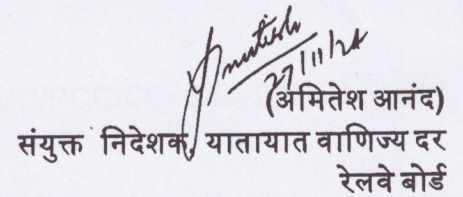 Amitesh
27/11/24
(अमितेश आनंद)
संयुक्त निदेशक, यातायात वाणिज्य दर
रेलवे बोर्ड